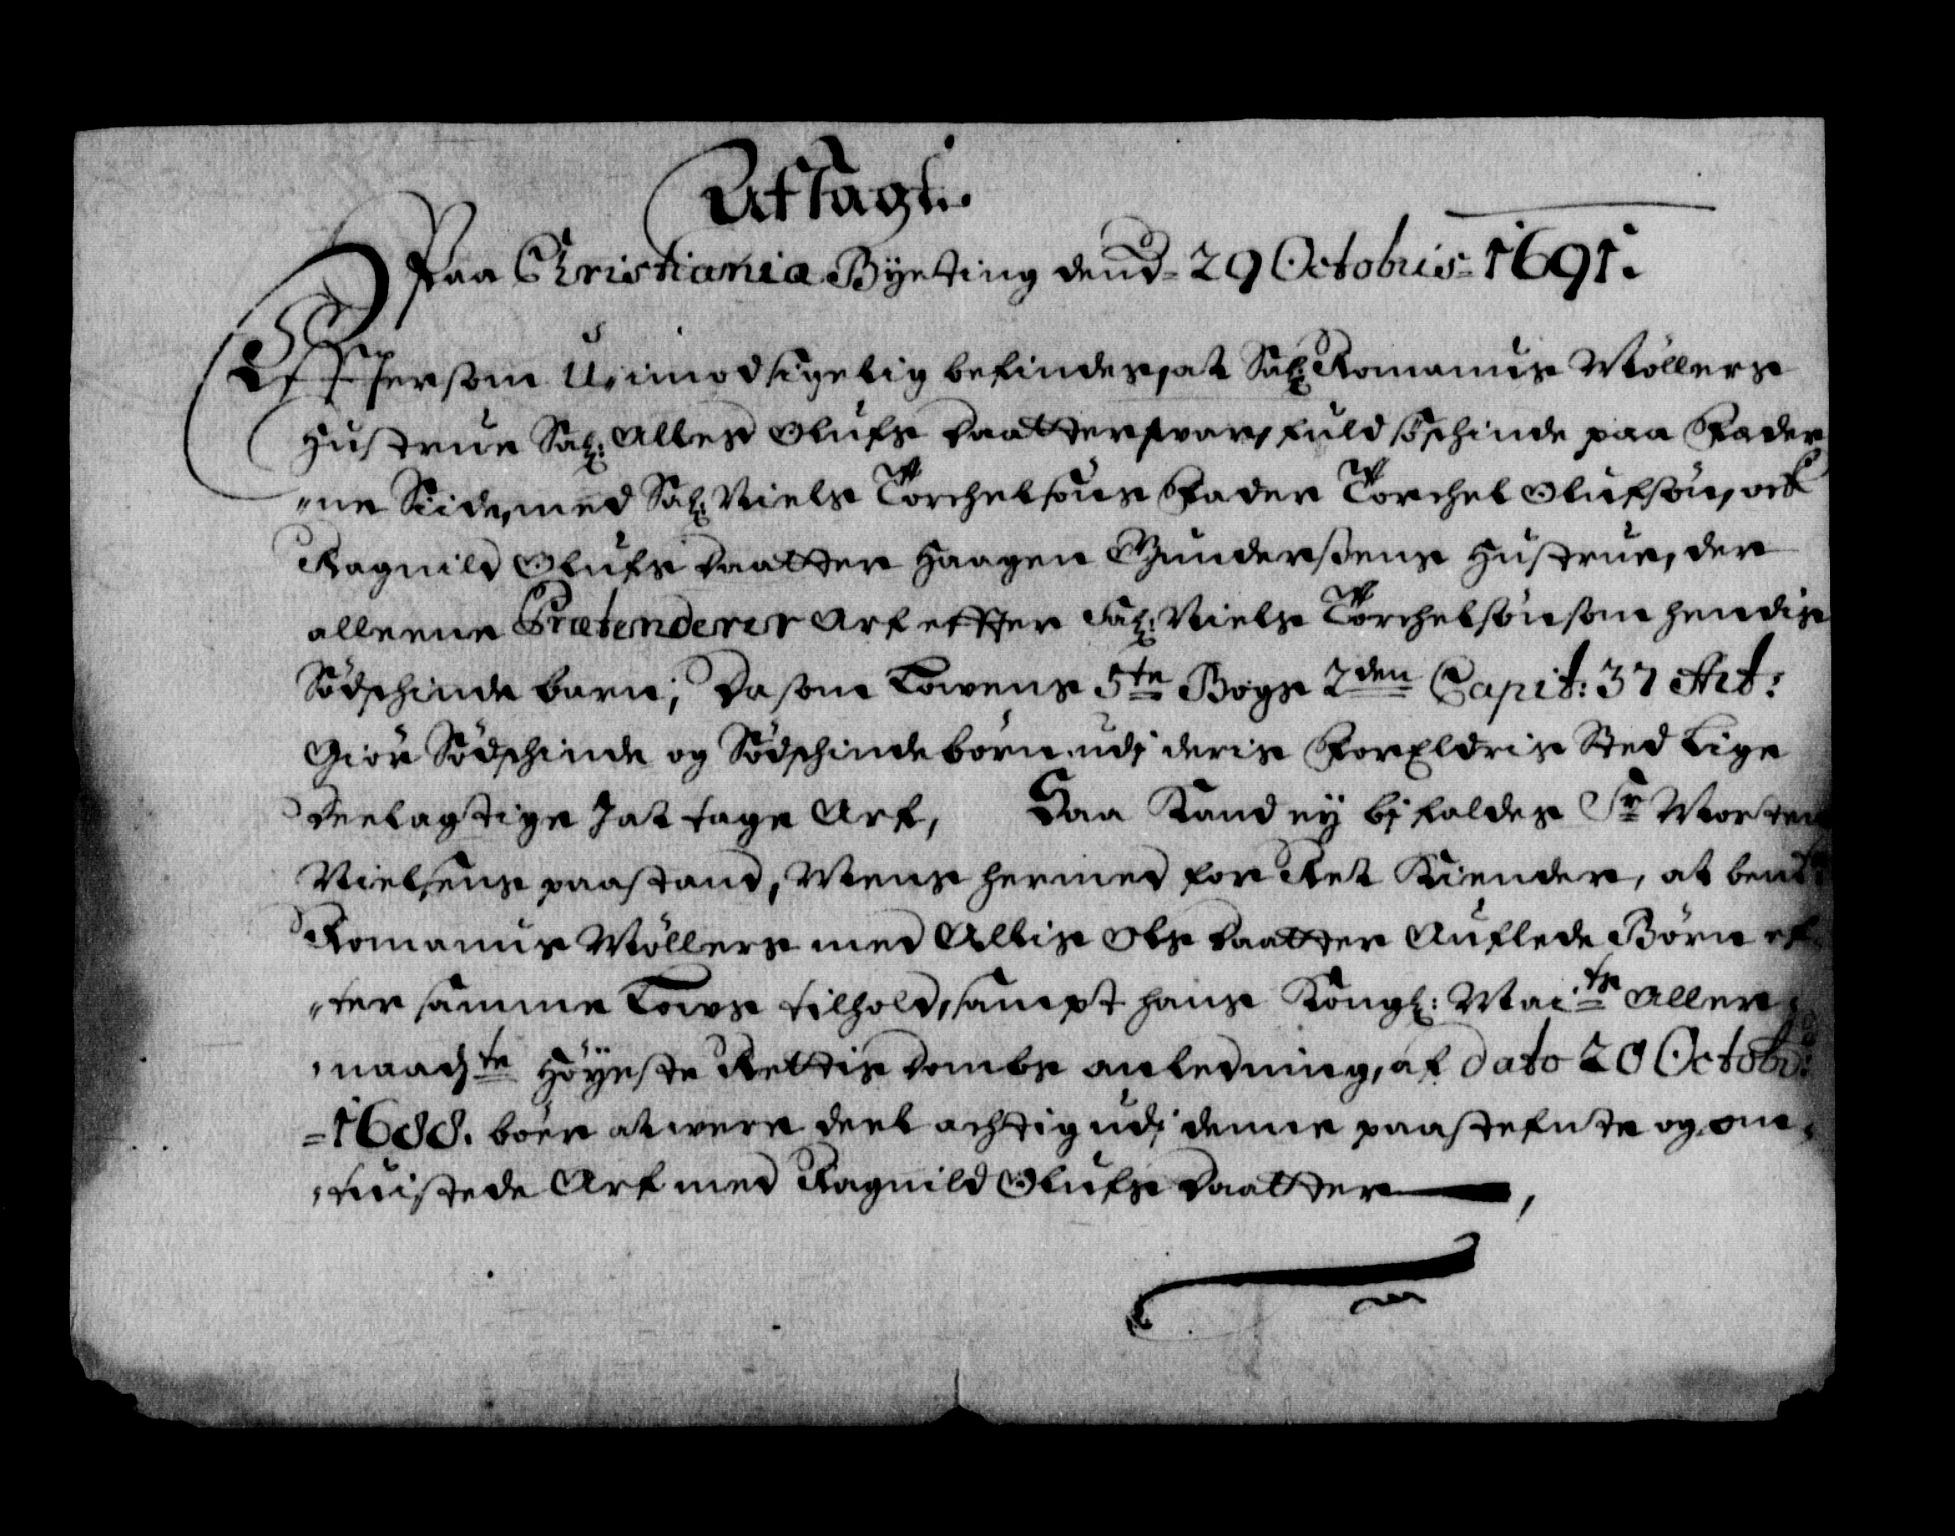 Afsagt.
Paa Christiania Byeting dend 29 Octobris 1691.
Effter som Uimodsigelig befindes, at Sal: Romanus Möllers
Hustrue Sal: Alles Olufs daatter, var fuld söschinde paa Fader
ne Siide, med Sal: Niels Torchelsöns Fader Torchel Olufsön, och
Ragnild Olufs daatter Haagen Gundersens Hustrue, der
alleene Prætenderer Arf effter Sal: Niels Torchelsön som hendis
Södschinde barn; Da som Lowens 5te Bogs 2den Capit: 37 Art:
Giör Södschinde og Södschindebörn udj deris Forældris Sted Lige
deelagtige I at tage Arf, Saa Kand ey bifaldes Sr Morten
Nielsens paastand, Mens hermed for Ret Kiender, at bem:te
Romanus Möllers med Allis Ols daatter Auflede Börn ef
ter samme Lows tilhold, sampt hans Kongl: Mai:ts Aller
naad:te Höyeste Rettis dombs anledning, af dato 20 Octobr:
1688. böer at were deelachtig udj denne paastefnte og om
tuistede Arf med Ragnild Olufs daatter,